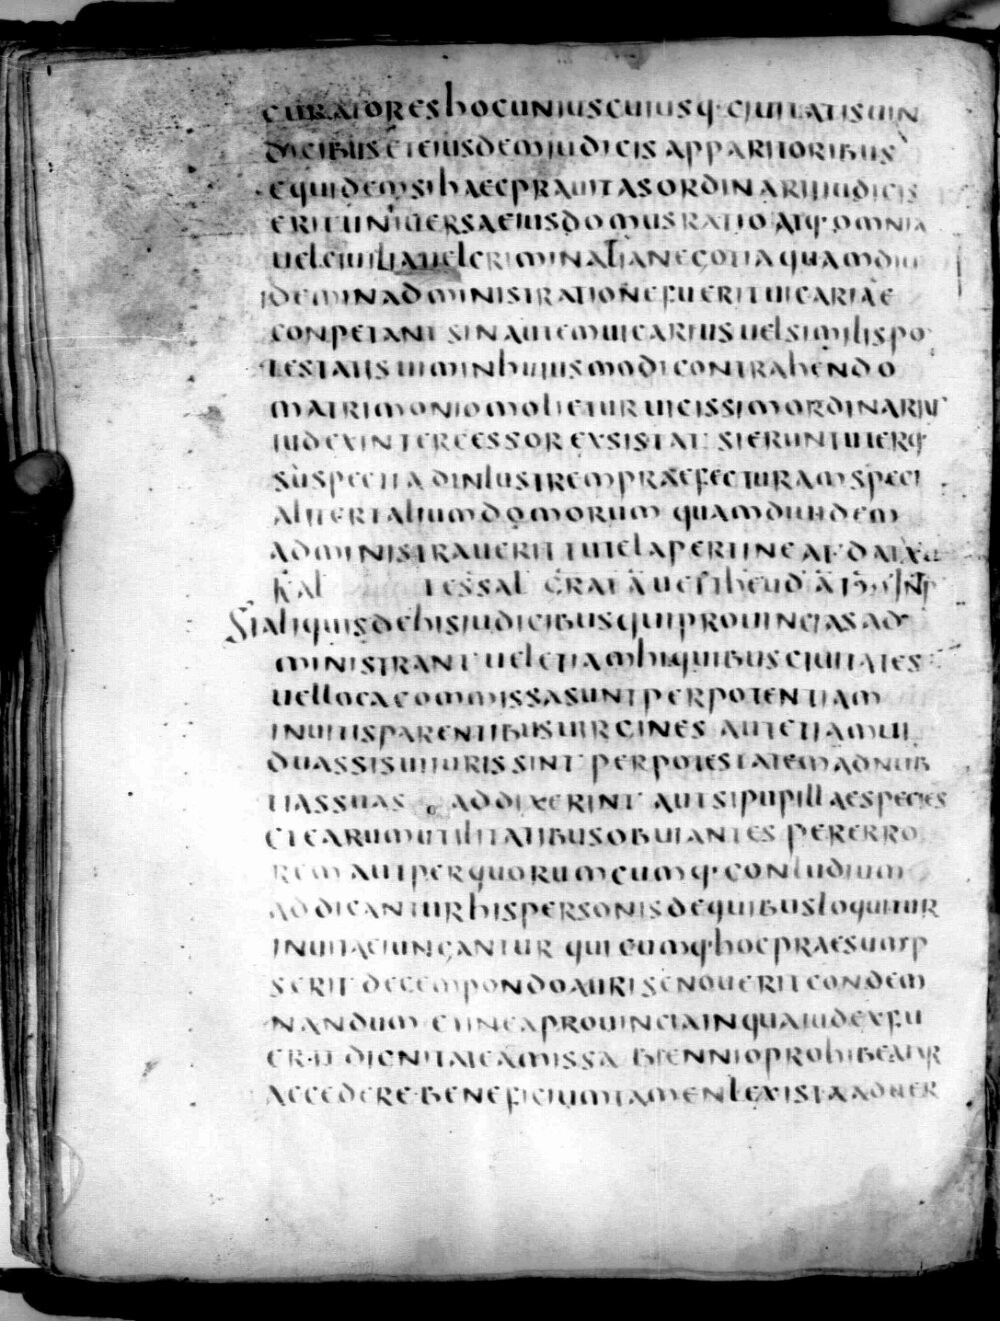 CURATORES hOC UNIUSCUIUSq· CIUITATIS UIN
DICIBUS ET EIUSDEM IUDICIS APPARITORIBUS
EQUIDEM SI hAEC PRAUITAS ORDINARII IUDICIS
ERIT UNIUERSA EIUS DOMUS RATIO ATq· OMNIA
UEL CIUILIA UEL CRIMINALIA NEGOTIA QUAMDIU
IDEM IN ADMINISTRATIONE FUERIT UICARIAE
CONPETANT SIN AUTEM UICARIUS UEL SIMILIS PO
TESTATIS UIM IN hUIUSMODI CONTRAhENDO
MATRIMONIO MOLIETUR UICISSIM ORDINARIU
IUDEX INTERCESSOR EXSISTAT SI ERUNT UTERq·
SUSPECTI AD INLUSTREM PRAEFECTURAM SPECI
ALITER TALIUM DOMORUM QUAMDIU IDEM
ADMINISTRAUERIT TUTELA PERTINEAT· DAT X
KAL TESSAL GRAT Ā U ET TbEUD Ā
SI ALIQUIS DE hIS IUDICIBUS QUI PROUINCIAS AD
MINISTRANT UEL ETIAM hI QUIBUS CIUITATES
UEL LOCA COMMISSA SUNT PER POTENTIAM
INUITIS PARENTIBUS UIRGINES AUT ETIAM UI
DUAS SI SUI IURIS SINT PER POTESTATEM AD NUB
TIAS SUAS ADDIXERINT AUT SI PUPILLAE SPECIES
ET EARUM UTILITATIBUS OBUIANTES PER ERRO
REM AUT PER QUORUMCUMq· CONLUDIUM
ADDICANTUR hIS PERSONIS DE QUIBUS LOQUITUR
INUITAE IUNGANTUR QUICUMq· hOC PRAESUMP
SERIT DECEM PONDO AURI SE NOUERIT CONDEM
NANDUM ET IN EA PROUINCIA IN QUA IUDEX FU
ERIT DIGNITATE AMISSA BIENNIO PROhIBEATUR
ACCEDERE· BENEFICIUM TAMEN LEX ISTA AD UER